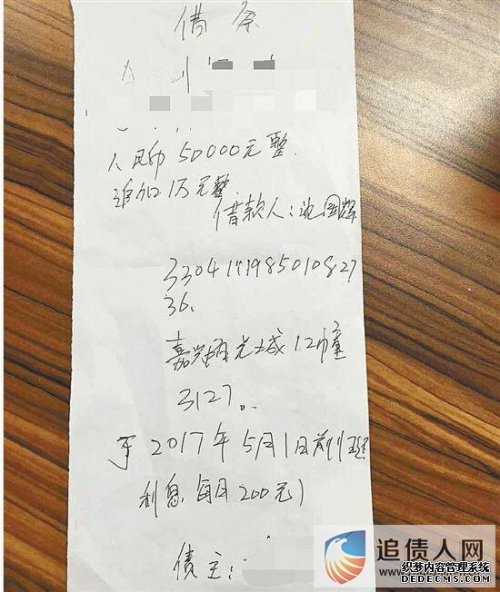 借条
人民币50000元整.
追加1万元整
借款人:沈国辉
3304111985010827
36.
嘉兴阳光城12幢
3127.
于2017年5月1日前归还
利息每月200元)
债主:
追债人网
织梦内容管理系统
DEDECMS.COM